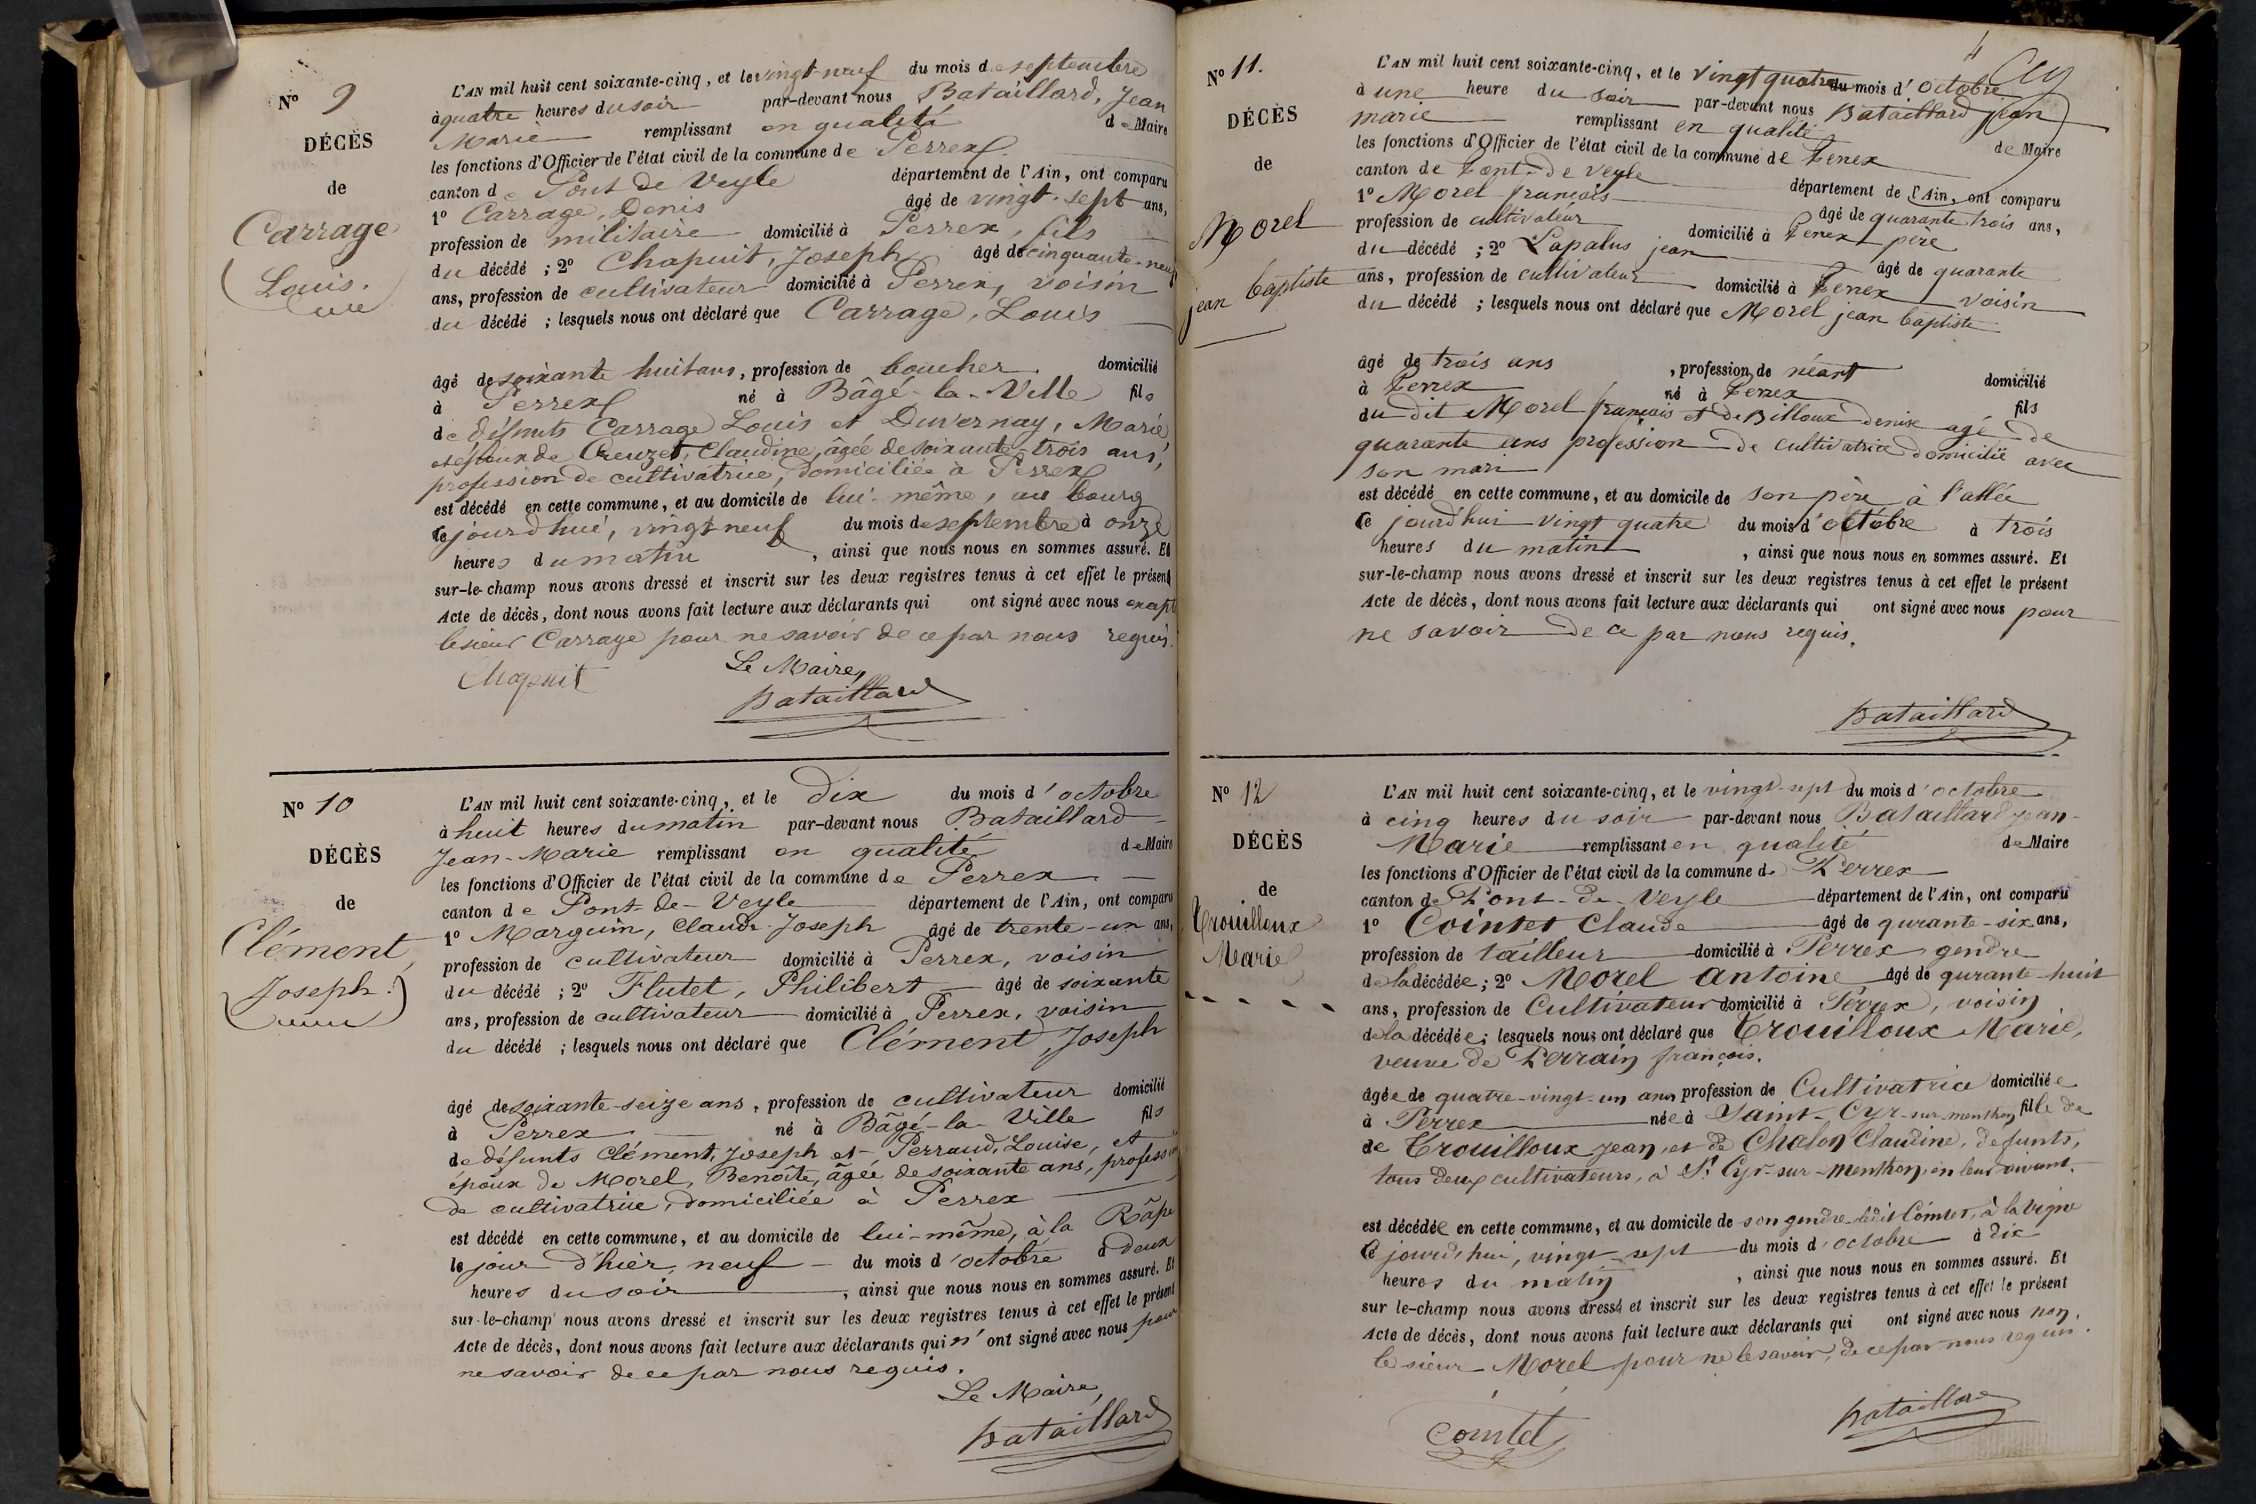 N° 9
DÉCÈS
de
Carrage
Louis.
L'AN mil huit cent soixante-cinq, et le vingt-neuf du mois de septembre
à quatre heures du soir par-devant nous Bataillard, Jean
Marie remplissant en qualité de Maire
les fonctions d'Officier de l'état civil de la commune de Perrex
canton de Pont de Veyle département de l'Ain, ont comparu
1° Carrage, Denis âgé de vingt-sept ans,
profession de militaire domicilié à Perrex, fils
du décédé ; 2° Chapuit, Joseph âgé de cinquante-neuf
ans, profession de cultivateur domicilié à Perrex, voisin
du décédé ; lesquels nous ont déclaré que Carrage, Louis
âgé de soixante huit ans, profession de boucher domicilié
à Perrex né à Bâgé-la-Ville fils
de défunts Carrage Louis et Duvernay, Marie,
et époux de Creuzet, Claudine, âgée de soixante-trois ans,
profession de cultivatrice, domiciliée à Perrex
est décédé en cette commune, et au domicile de lui-même, au bourg
ce jourd'hui, vingt neuf du mois de septembre à onze
heures du matin, ainsi que nous nous en sommes assuré. Et
sur-le-champ nous avons dressé et inscrit sur les deux registres tenus à cet effet le présent
Acte de décès, dont nous avons fait lecture aux déclarants qui ont signé avec nous except
le sieur Carrage pour ne savoir de ce par nous requis.
Chapuit
Le Maire,
Bataillard
N° 10
DÉCÈS
de
Clément,
Joseph.
L'AN mil huit cent soixante-cinq, et le dix du mois d'octobre
à huit heures du matin par-devant nous Bataillard
Jean-Marie remplissant en qualité de Maire
les fonctions d'Officier de l'état civil de la commune de Perrex
canton de Pont-de-Veyle département de l'Ain, ont comparu
1° Marguin, Claude Joseph âgé de trente-un ans,
profession de cultivateur domicilié à Perrex, voisin
du décédé ; 2° Flutet, Philibert âgé de soixante
ans, profession de cultivateur domicilié à Perrex, voisin
du décédé ; lesquels nous ont déclaré que Clément, Joseph
âgé de soixante-seize ans, profession de cultivateur domicilié
à Perrex né à Bâgé-la-Ville fils
de défunts Clément, Joseph et Perraud, Louise, et
époux de Morel, Benoîte, âgée de soixante ans, profession
de cultivatrice, domiciliée à Perrex
est décédé en cette commune, et au domicile de lui-même, à la Râpe
le jour d'hier, neuf du mois d'octobre à deux
heures du soir, ainsi que nous nous en sommes assuré. Et
sur-le-champ nous avons dressé et inscrit sur les deux registres tenus à cet effet le présent
Acte de décès, dont nous avons fait lecture aux déclarants qui n'ont signé avec nous pour
ne savoir de ce par nous requis.
Le Maire,
Bataillard
N° 11.
DÉCÈS
de
Morel
jean baptiste
L'AN mil huit cent soixante-cinq, et le vingt quatre du mois d'octobre
à une heure du soir par-devant nous Bataillard jean
marie remplissant en qualité de Maire
les fonctions d'Officier de l'état civil de la commune de Perrex
canton de Pont-de Veyle département de l'Ain, ont comparu
1° Morel français âgé de quarante trois ans,
profession de cultivateur domicilié à Perrex père
du décédé ; 2° Lapalus jean âgé de quarante
ans, profession de cultivateur domicilié à Perrex voisin
du décédé ; lesquels nous ont déclaré que Morel jean baptiste
âgé de trois ans, profession de néant domicilié
à Perrex né à Perrex fils
du dit Morel français et de Billoux denise agé de
quarante ans profession de cultivatrice domicilié avec
son mari
est décédé en cette commune, et au domicile de son père à l'allée
ce jourd'hui vingt quatre du mois d'octobre à trois
heures du matin, ainsi que nous nous en sommes assuré. Et
sur-le-champ nous avons dressé et inscrit sur les deux registres tenus à cet effet le présent
Acte de décès, dont nous avons fait lecture aux déclarants qui ont signé avec nous pour
ne savoir de ce par nous requis.
Bataillard
N° 12
DÉCÈS
de
Trouilloux
Marie
L'AN mil huit cent soixante-cinq, et le vingt-sept du mois d'octobre
à cinq heures du soir par-devant nous Bataillard Jean-
Marie remplissant en qualité de Maire
les fonctions d'Officier de l'état civil de la commune de Perrex
canton de Pont-de-Veyle département de l'Ain, ont comparu
1° Cointet Claude âgé de qurante-six ans,
profession de tailleur domicilié à Perrex gendre
de la décédée ; 2° Morel Antoine âgé de qurante-huit
ans, profession de Cultivateur domicilié à Perrex, voisin
de la décédée ; lesquels nous ont déclaré que Trouilloux Marie,
veuve de Perrain françois.
âgée de quatre-vingt-un ans profession de Cultivatrice domiciliée
à Perrex née à Saint-Cyr-sur-menthon fille de
de Trouilloux Jean, et de Chalon Claudine, defunts,
tous deux cultivateurs, à St Cyr-sur-menthon, en leur vivant.
est décédée en cette commune, et au domicile de son gendre ledit Cointet, à la vigne
ce jourd'hui, vingt-sept du mois d'octobre à dix
heures du matin, ainsi que nous nous en sommes assuré. Et
sur le-champ nous avons dressé et inscrit sur les deux registres tenus à cet effet le présent
Acte de décès, dont nous avons fait lecture aux déclarants qui ont signé avec nous non,
le sieur Morel pour ne le savoir, de ce par nous requis.
Cointet
Bataillard